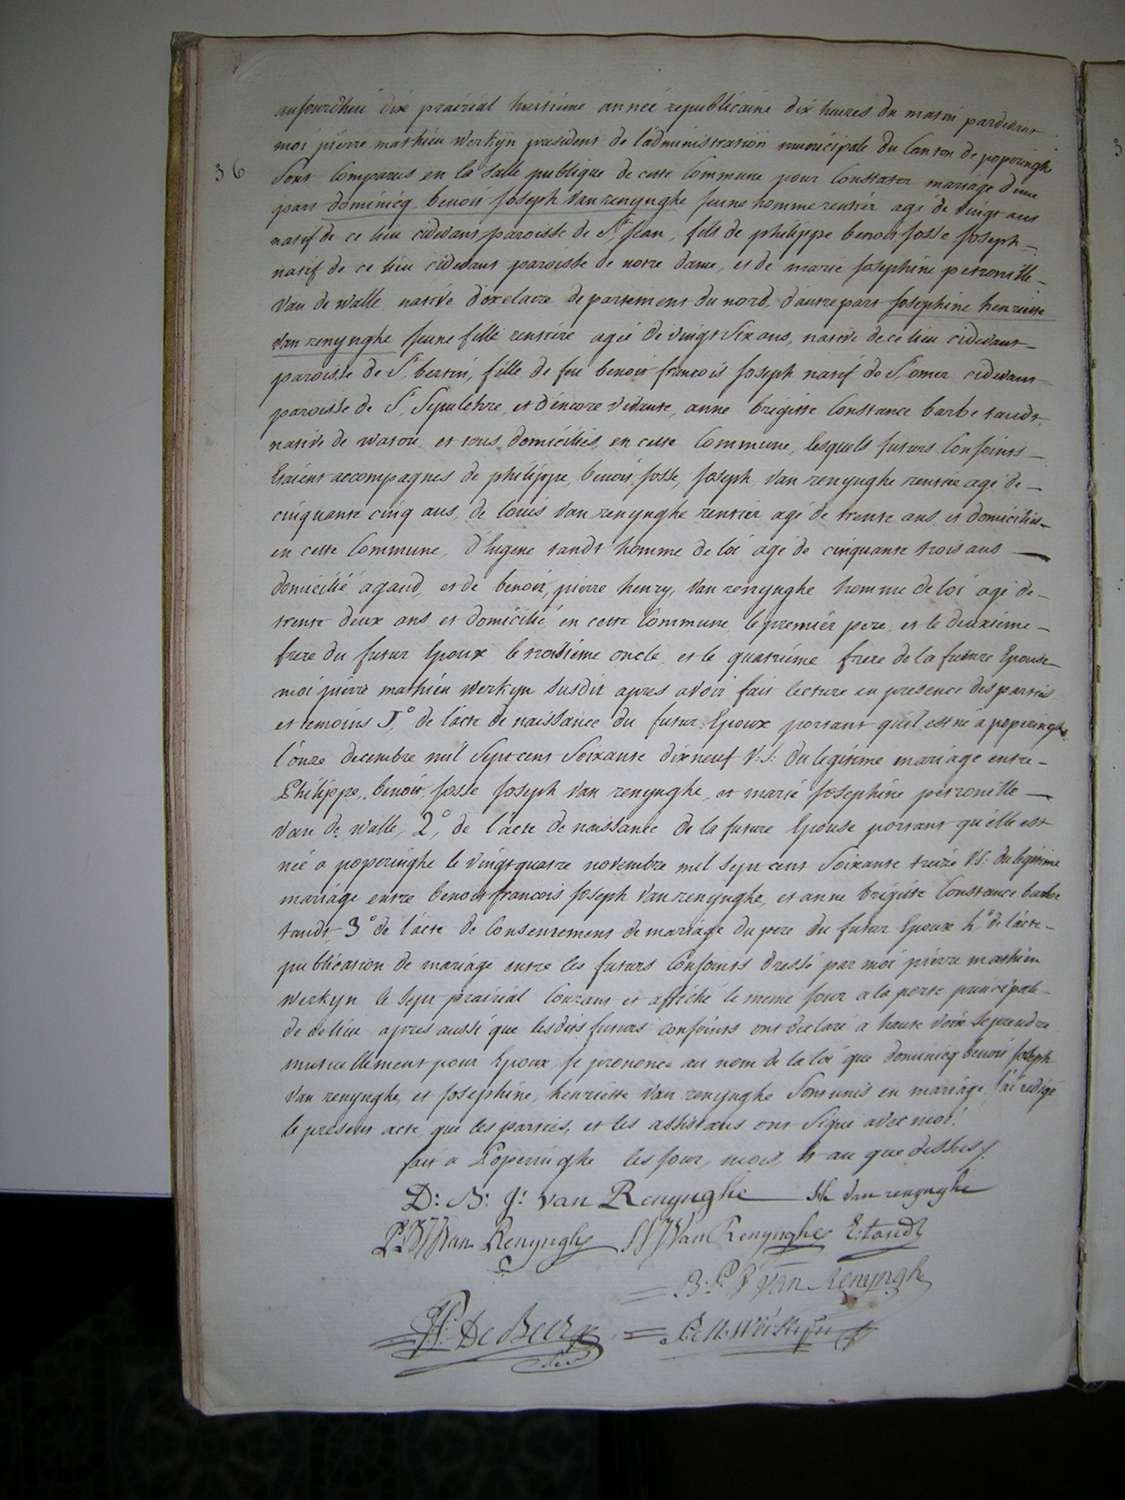 aujourdhui dix prairial huitieme année republicaine dix heures du matin pardevant
moi pierre mathieu werkijn president de l'administration municipale du Canton de poperinghe
36
Sont Comparus en la Salle publique de cette Commune pour Constater mariage d'une
part dominicq benoit joseph Van renynghe jeune homme rentier agé de vingt ans
natif de ce lieu cidevant paroisse de St jean, fils de philippe benoit josse joseph
natif de ce lieu cidevant paroisse de notre dame, et de marie josephine petronille
Van de walle native d'oxelaere departement du nord, d'autre part josephine henriette
Van renynghe jeune fille rentiere agée de vingt Six ans, native de ce lieu cidevant
paroisse de St bertin, fille de feu benoit francois joseph natif de St omer cidevant
paroisse de St Sepulchre, et d'encore vivante, anne brigitte Constance barbe tandt,
native de watou et tous domiciliés en cette Commune, lesquels futurs Conjoints
Etaient accompagnés de philippe, benoit josse, joseph Van renynghe rentier agé de
cinquante cinq ans, de louis Van renynghe rentier agé de trente ans et domiciliés
en cette Commune, d'Eugene tandt homme de loi agé de cinquante trois ans
domicilié a gand, et de benoit, pierre henry, Van renynghe homme de loi agé de
trente deux ans et domicilié en cette Commune, le premier pere, et le deuxieme
frere du futur Epoux le troisieme oncle, et le quatrieme frere de la future Epouse
moi pierre mathieu werkyn susdit apres avoir fait lecture en presence des parties
et temoins 1° de l'acte de naissance du futur Epoux portant qu'il est né a poperinghe
l'onze decembre mil Sept cent Soixante dixneuf V:S: du legitime mariage entre
Philippe, benoit josse joseph Van renynghe, et marie josephine petronille
Van de walle, 2°, de l'acte de naissance de la future Epouse portant qu'elle est
née a poperinghe le vingt quatre novembre mil sept cent Soixante treize V.S: du legitime
mariage entre benoit francois joseph Van renynghe, et anne brigitte Constance barbe
tandt, 3° de l'acte de Consentement de mariage du pere du futur Epoux 4° de l'acte
publication de mariage entre les futurs Conjoints dressé par moi pierre mathieu
werkyn le sept prairial Courant et affiché le meme jour a la porte principale
de ce lieu apres aussi que lesdits futurs conjoints ont declaré a haute voix se prendre
mutuellement pour Epoux je prononce au nom de la loi que dominicq benoit joseph
Van renynghe, et josephine, henriette Van renynghe Sont unis en mariage, j'ai redigé
le present acte que les parties, et les assistans ont Signé avec moi.
fait a Poperinghe les jour, mois, et an que dessus /.
D: B: J: van Renynghe JH van renynghe
P:B:JJ Van Renynghe Van Renynghe E: tandt
B: P: H Van Renyngh
De Beer
P: M. Werkyn